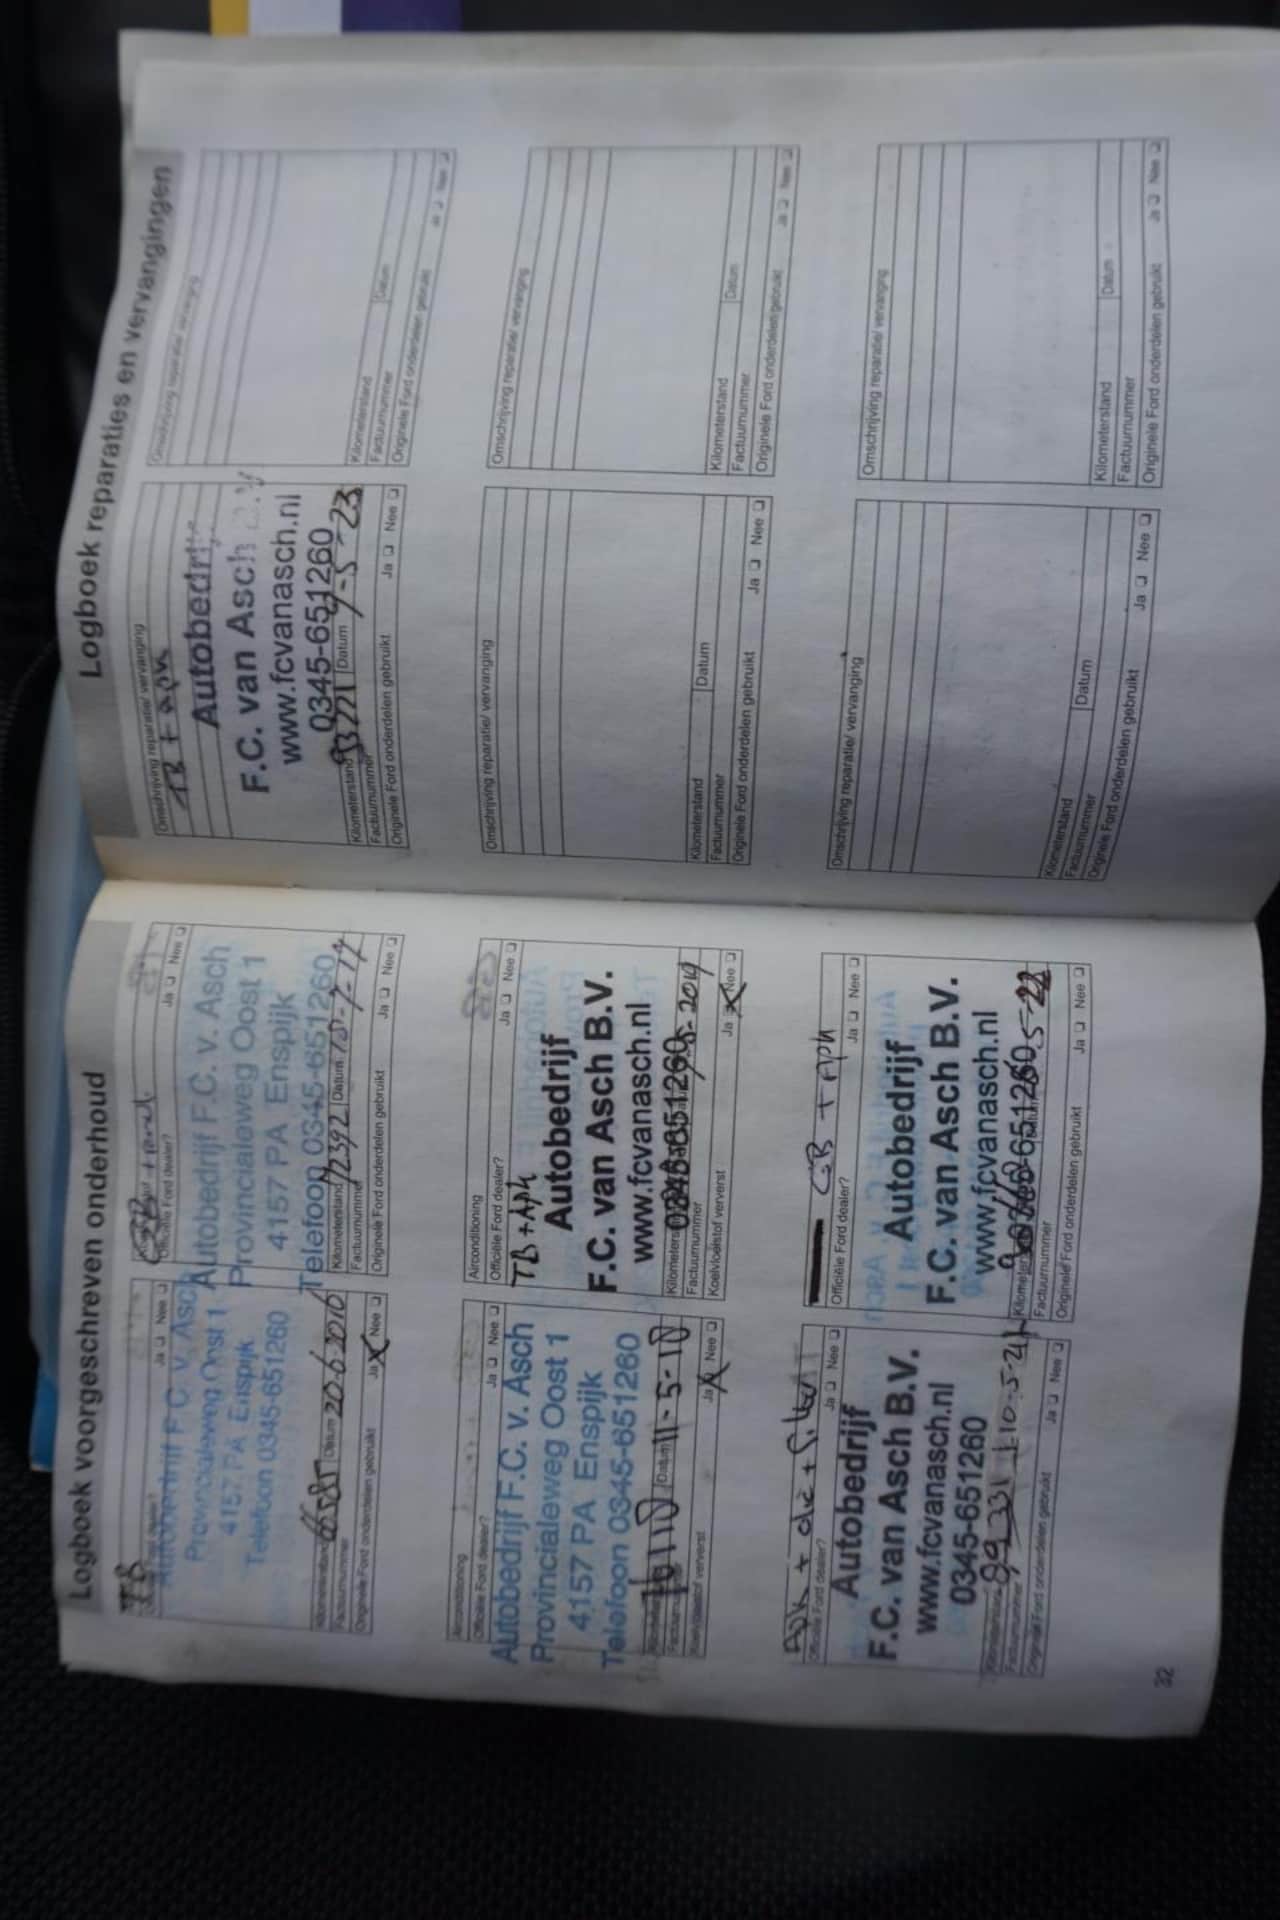 Logboek voorgeschreven onderhoud
TB
Ja ❑ Nee ❑
Autobedrijf F.C. v. Asch
Provincialeweg Oost 1
4157 PA Enspijk
Telefoon 0345-651260
Kilometerstand 66585 Datum 20-6-2016
Factuurnummer
Originele Ford onderdelen gebruikt Ja Nee ❑
Officiële Ford dealer? Ja ❑ Nee ❑
Autobedrijf F.C. v. Asch
Provincialeweg Oost 1
4157 PA Enspijk
Telefoon 0345-651260
Kilometerstand 72392 Datum
Factuurnummer
Originele Ford onderdelen gebruikt Ja ❑ Nee ❑
Airconditioning
Officiële Ford dealer? Ja ❑ Nee ❑
Autobedrijf F.C. v. Asch
Provincialeweg Oost 1
4157 PA Enspijk
Telefoon 0345-651260
Datum 11-5-18
Koelvloeistof ververst Ja Nee ❑
Airconditioning
Officiële Ford dealer? Ja ❑ Nee ❑
TB + APK
Autobedrijf
F.C. van Asch B.V.
www.fcvanasch.nl
0345-651260
Kilometerstand
Factuurnummer
Koelvloeistof ververst Ja Nee ❑
APK + olie + filter
Officiële Ford dealer? Ja ❑ Nee ❑
Autobedrijf
F.C. van Asch B.V.
www.fcvanasch.nl
0345-651260
Kilometerstand 89331 10-5-21
Factuurnummer
Originele Ford onderdelen gebruikt Ja ❑ Nee ❑
GB + APK
Officiële Ford dealer? Ja ❑ Nee ❑
Autobedrijf
F.C. van Asch B.V.
www.fcvanasch.nl
0345-651260
Kilometerstand
Factuurnummer
Originele Ford onderdelen gebruikt Ja ❑ Nee ❑
32
Logboek reparaties en vervangingen
Omschrijving reparatie/ vervanging
TB + APK
Autobedrijf
F.C. van Asch B.V.
www.fcvanasch.nl
0345-651260
Kilometerstand 93221 Datum 9-5-23
Factuurnummer
Originele Ford onderdelen gebruikt Ja ❑ Nee ❑
Omschrijving reparatie/ vervanging
Kilometerstand Datum
Factuurnummer
Originele Ford onderdelen gebruikt Ja ❑ Nee ❑
Omschrijving reparatie/ vervanging
Kilometerstand Datum
Factuurnummer
Originele Ford onderdelen gebruikt Ja ❑ Nee ❑
Omschrijving reparatie/ vervanging
Kilometerstand Datum
Factuurnummer
Originele Ford onderdelen gebruikt Ja ❑ Nee ❑
Omschrijving reparatie/ vervanging
Kilometerstand Datum
Factuurnummer
Originele Ford onderdelen gebruikt Ja ❑ Nee ❑
Omschrijving reparatie/ vervanging
Kilometerstand Datum
Factuurnummer
Originele Ford onderdelen gebruikt Ja ❑ Nee ❑